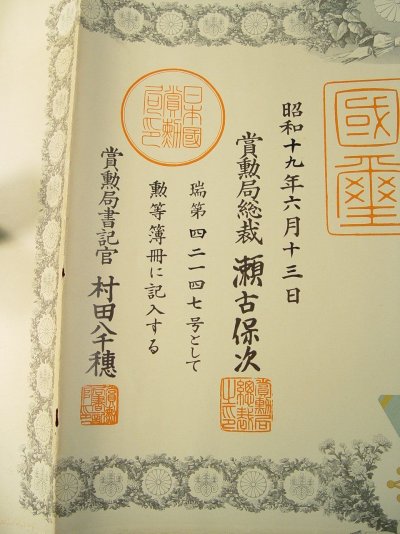 昭和十九年六月十三日
國璽
賞勲局総裁 瀬古保次
賞勲局総裁之印
瑞第四二一四七号として
勲等簿冊に記入する
日本國賞勲局印
賞勲局書記官 村田八千穂